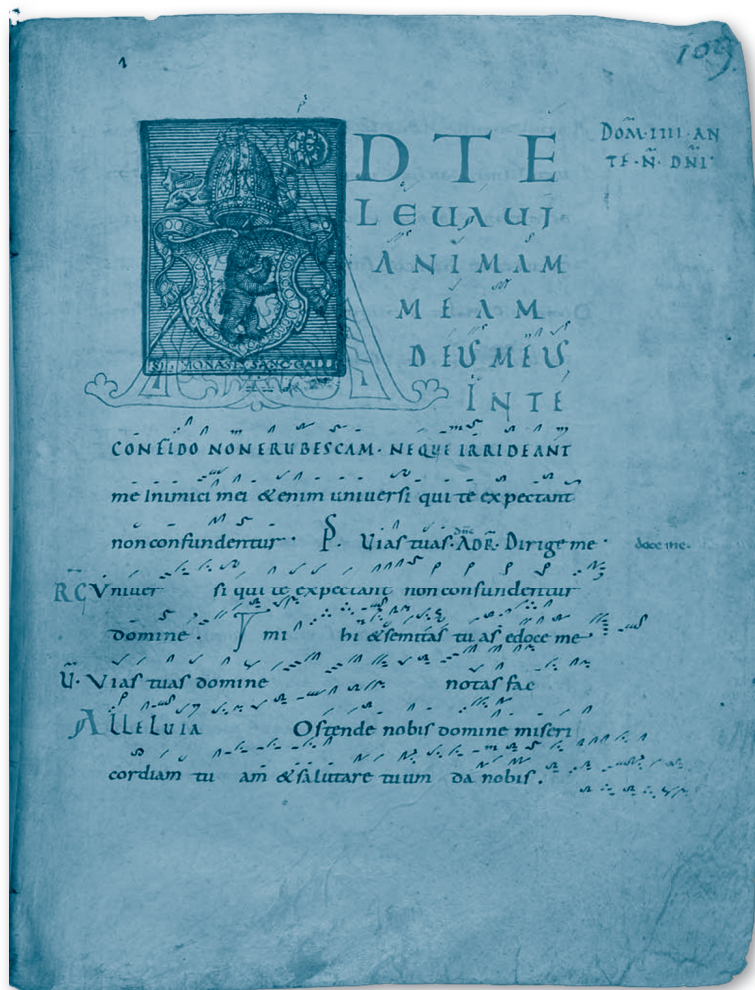 109.
DOM̄·IIII·AN
TE·N̄·DN̄I·
AD TE
LEUAUI
ANIMAM
MEAM
DEUS MEUS
IN TE
CONFIDO NON ERUBESCAM· NEQUE IRRIDEANT
me inimici mei &enim universi qui te expectant
non confundentur· PS. Vias tuas· ADR. Dirige me· doce me·
RG Vniuersi qui te expectant non confundentur
domine. Y mihi & semitas tuas edoce me
V̄· Vias tuas domine notas fac
ALLELUIA Ostende nobis domine miseri
cordiam tuam & salutare tuum da nobis.